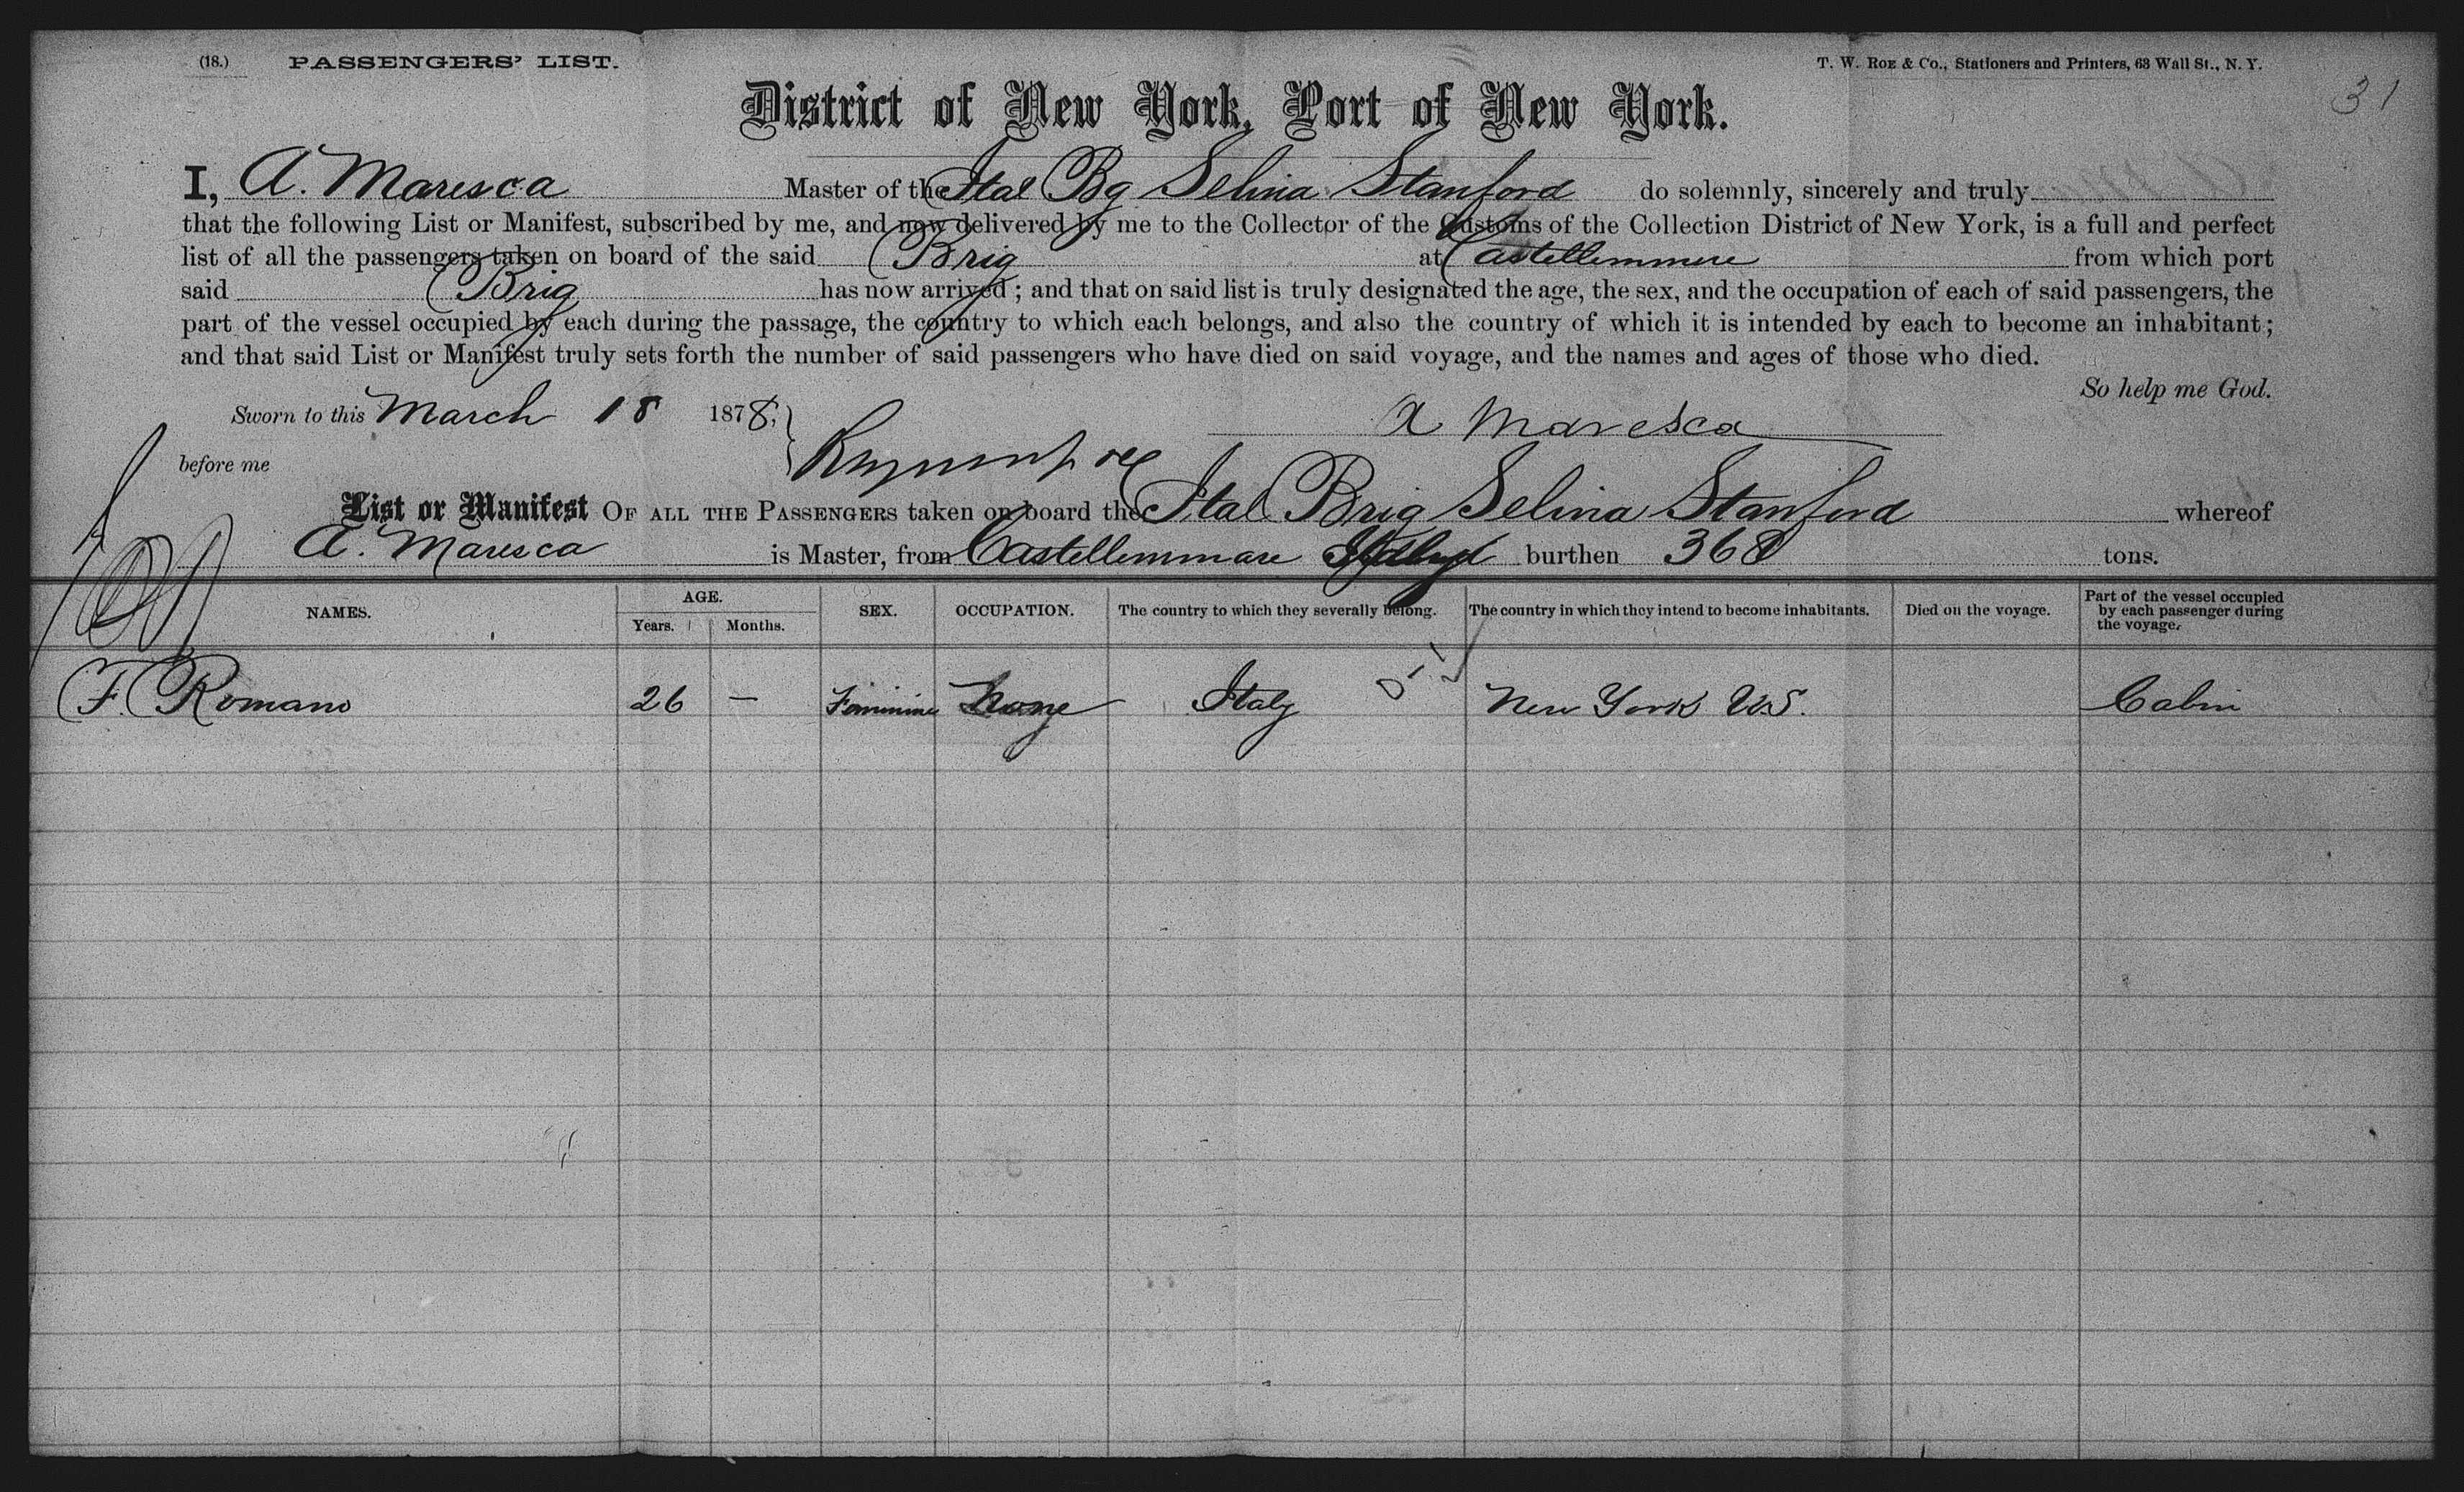 (18.) PASSENGERS' LIST. T. W. Roe & Co., Stationers and Printers, 63 Wall St., N. Y.
31
District of New York, Port of New York.
I, A. Maresca Master of the Ital Bg Selina Stanford do solemnly, sincerely and truly
that the following List or Manifest, subscribed by me, and now delivered by me to the Collector of the Customs of the Collection District of New York, is a full and perfect
list of all the passengers taken on board of the said Brig at Castellemmere from which port
said Brig has now arrived; and that on said list is truly designated the age, the sex, and the occupation of each of said passengers, the
part of the vessel occupied by each during the passage, the country to which each belongs, and also the country of which it is intended by each to become an inhabitant;
and that said List or Manifest truly sets forth the number of said passengers who have died on said voyage, and the names and ages of those who died.
So help me God.
Sworn to this March 18 1878, A Maresca
before me
List or Manifest OF ALL THE PASSENGERS taken on board the Ital Brig Selina Stanford whereof
A. Maresca is Master, from Castellemmare burthen 368 tons.
NAMES. AGE. Years. Months. SEX. OCCUPATION. The country to which they severally belong. The country in which they intend to become inhabitants. Died on the voyage. Part of the vessel occupied by each passenger during the voyage.
F. Romano 26 — Feminine None Italy New York U.S. Cabin